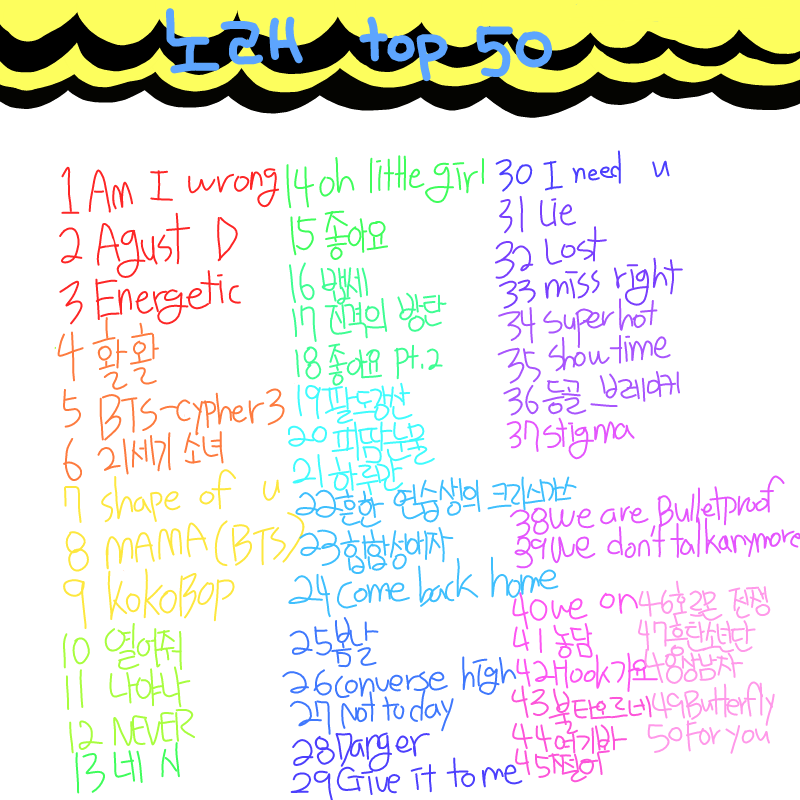 노래 top 50
1 Am I wrong
2 Agust D
3 Energetic
4 활활
5 BTS-cypher3
6 21세기 소녀
7 shape of u
8 MAMA(BTS)
9 KoKoBop
10 열어줘
11 나야나
12 NEVER
13 네 시
14 oh little girl
15 좋아요
16 뱁세
17 진격의 방탄
18 좋아요 pt.2
19 팔도강산
20 피땀눈물
21 하루만
22 흔한 연습생의 크리스마스
23 힙합성애자
24 come back home
25 봄날
26 converse high
27 Not today
28 Danger
29 Give it to me
30 I need u
31 Lie
32 Lost
33 miss right
34 super hot
35 show time
36 등골 브레이커
37 stigma
38 we are Bulletproof
39 we don't talk anymore
40 we on
41 농담
42 Hook가요
43 불타오르네
44 여기봐
45 쩔어
46 호르몬 전쟁
47 흥탄소년단
48 상남자
49 Butterfly
50 For you